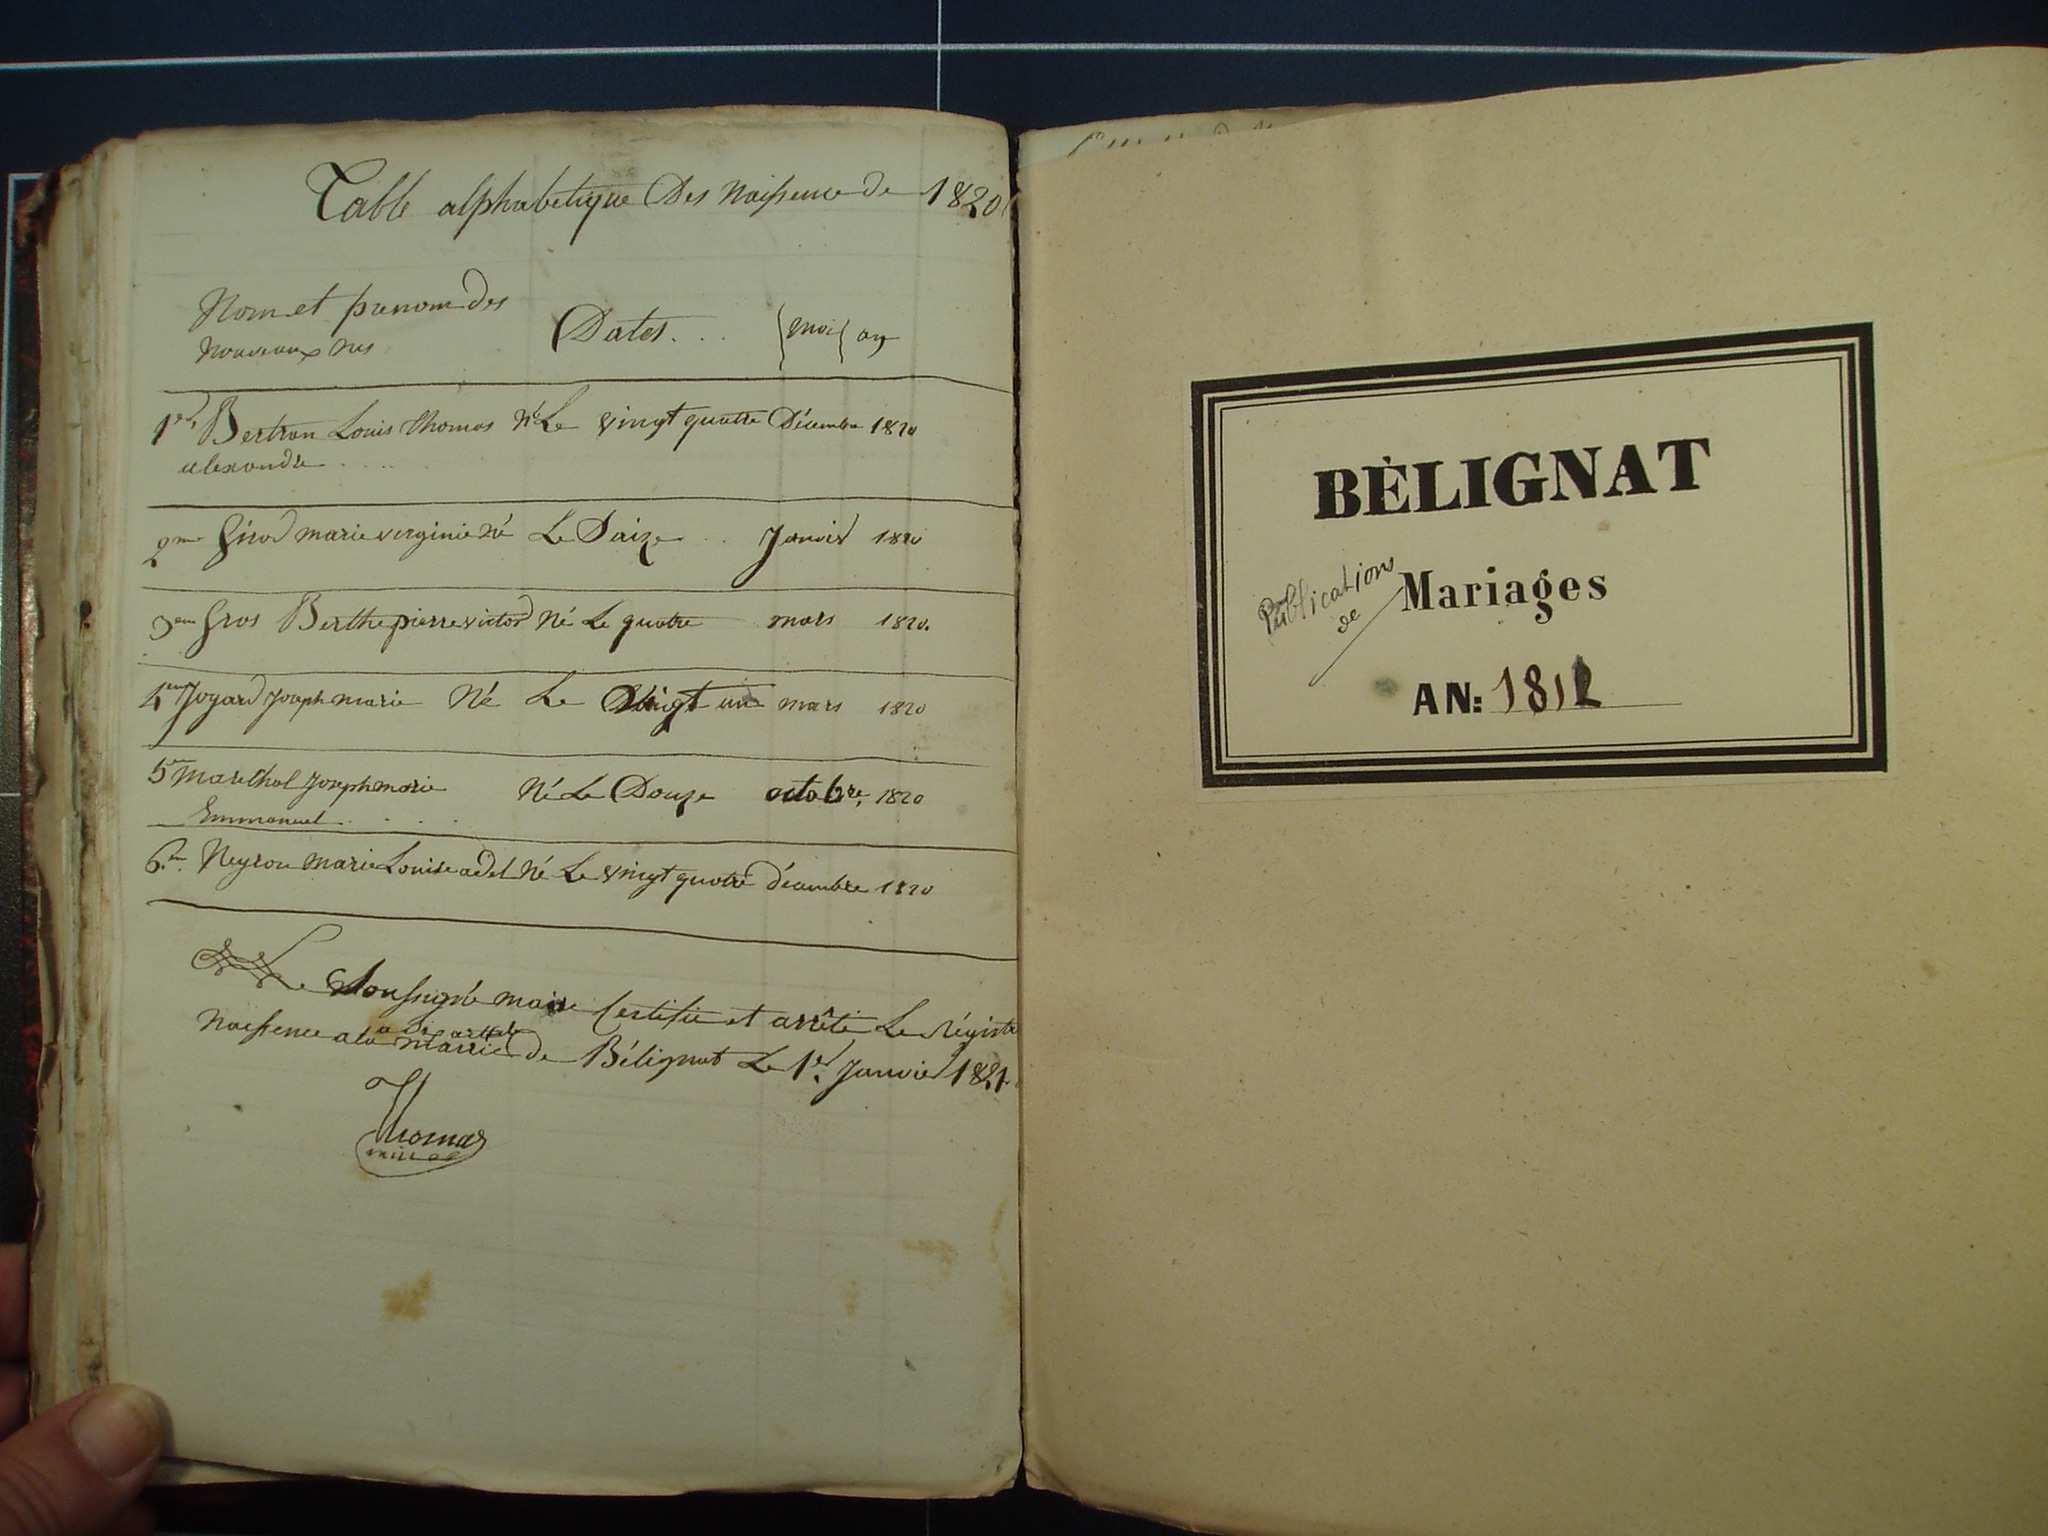 Table alphabetique Des Naissence de 1820
Nom et prenom des
Nouveaux nes
Dates... moi an
1er Bertron Louis thomas Né Le vingt quatre Décembre 1820
alexandre .....
2me Girod marie virginie Né Le Saize .. Janvier 1820
3em Gros Berthe pierre victor Né Le quatre mars 1820.
4em Joyard Joseph marie Né Le Vingt un mars 1820
5em Marechal Joseph marie Né Le Douze octobre, 1820
Emmanuel ....
6em Neyron Marie Louise adel Né Le vingt quatre décembre 1820
Le Soussigné maire Certifie et arrêté Le régistre
Naissence a la Mairie de Bélignat Le 1er Janvier 1821
Thomas
BÉLIGNAT
Publications
de
Mariages
AN: 1812